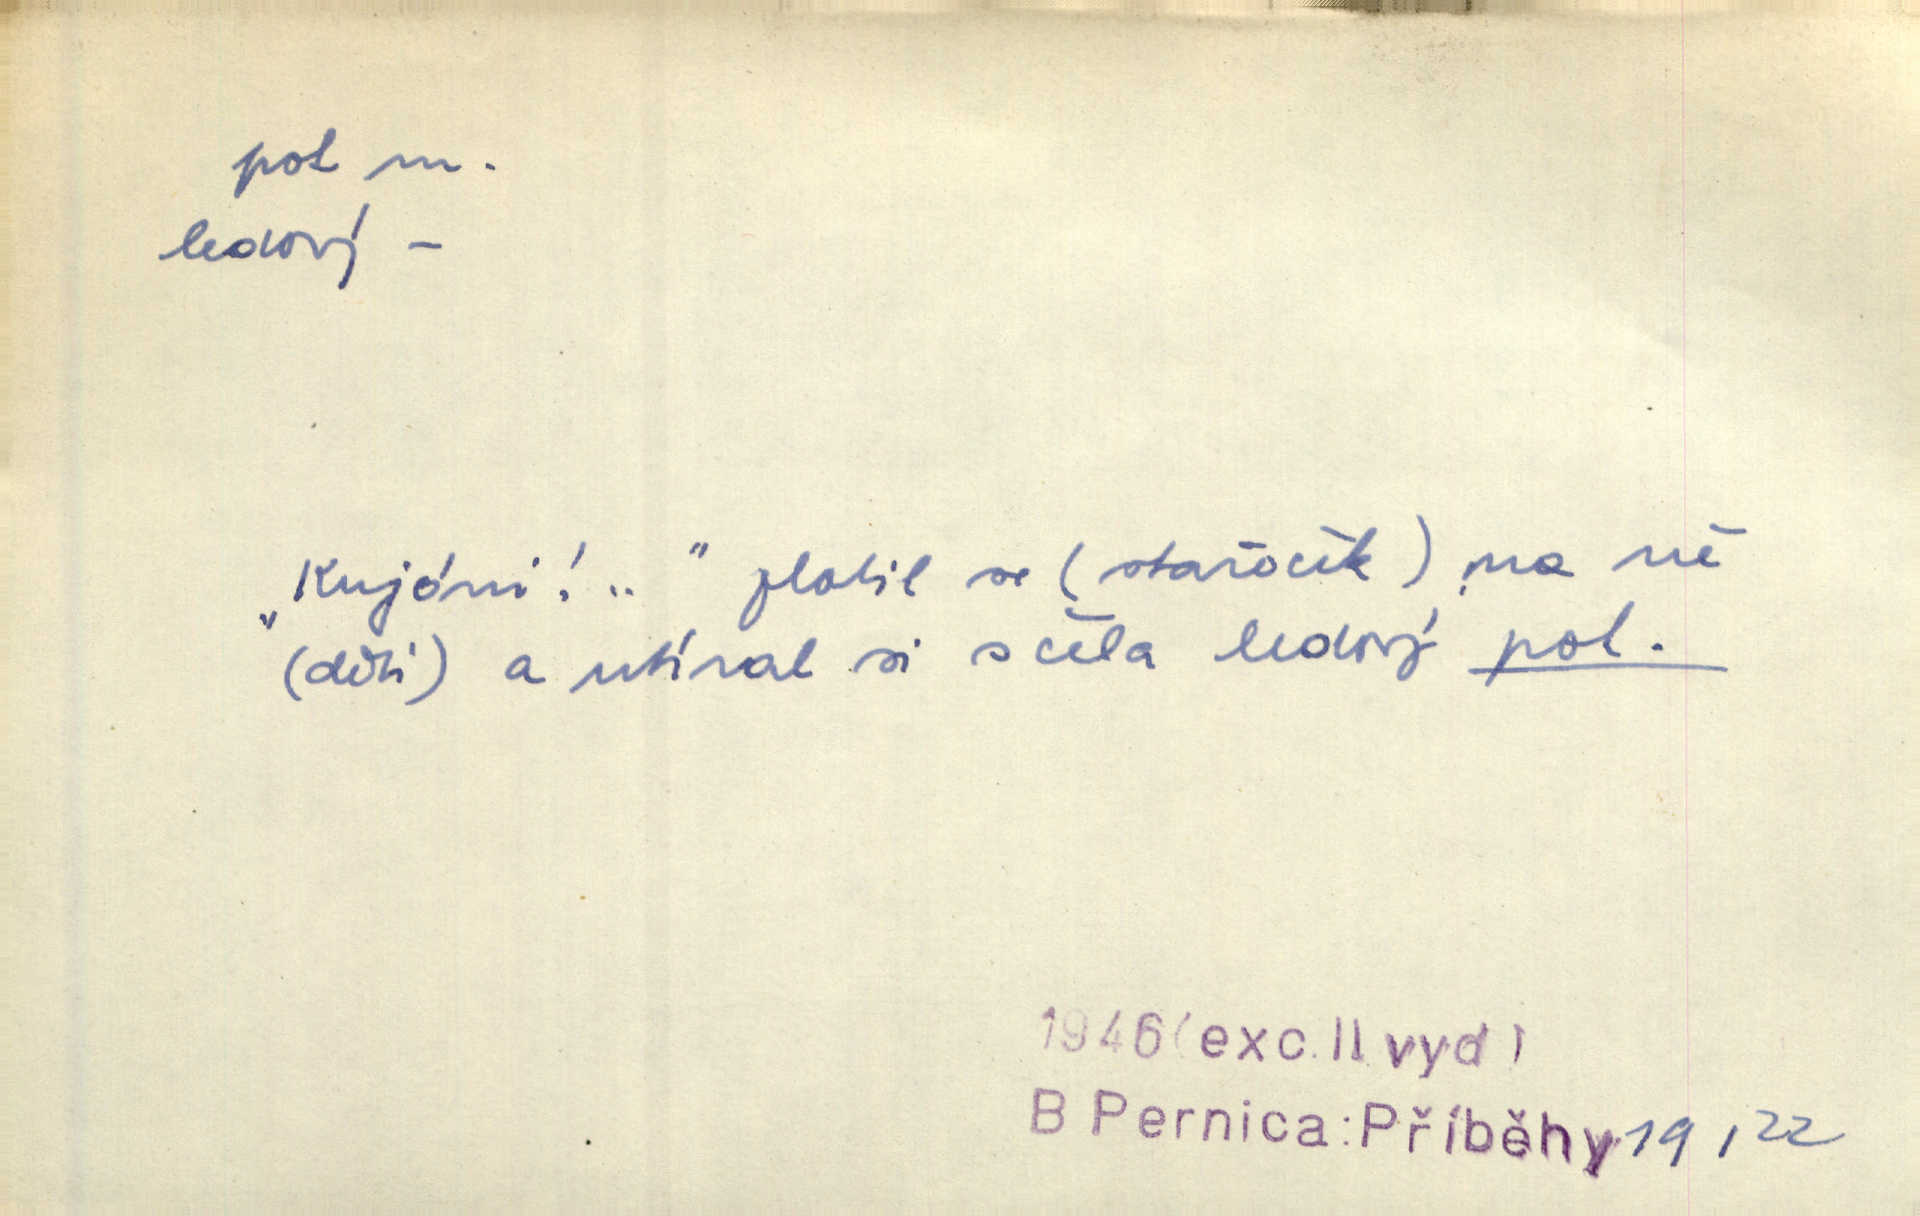 pot m.
ledový –
„Kujóni!.." zlobil se (stařóčík) na ně
(děti) a utíral si s čela ledový pot.
1946(exc.II vyd)
B Pernica:Příběhy 19,22